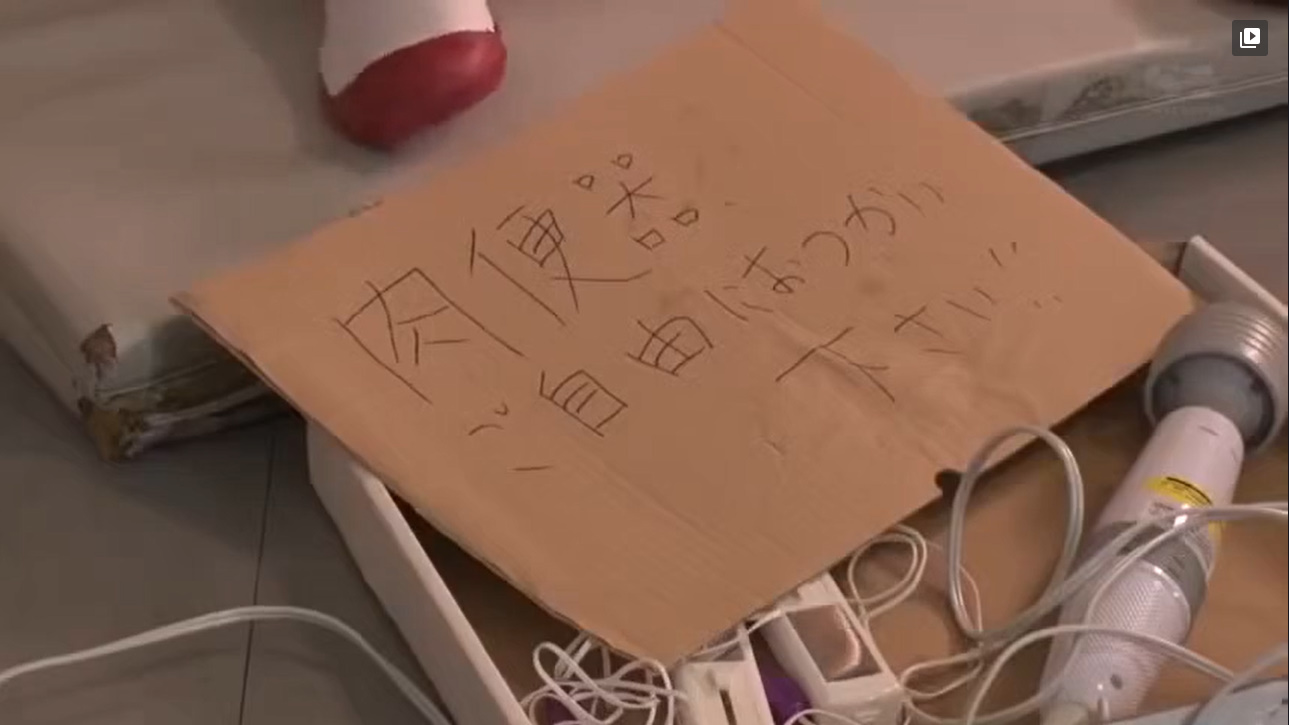 肉便器
ご自由におつかい
下さい